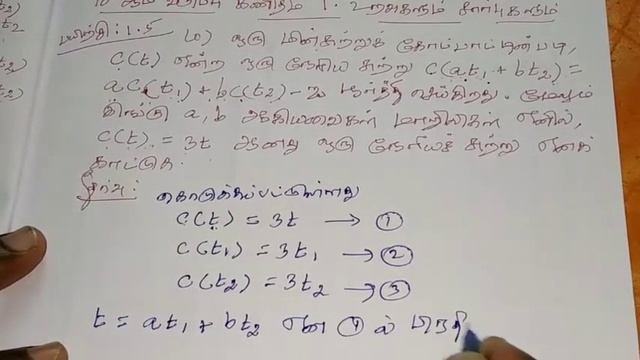 10 ஆம் வகுப்பு கணிதம் 1. உறவுகளும் சார்புகளும்
பயிற்சி: 1.5 10) ஒரு மின்சுற்றுக் கோட்பாட்டின்படி,
C(t) என்ற ஒரு நேரிய சுற்று C(at₁ + bt₂) =
aC(t₁) + bC(t₂) - ஐ பூர்த்தி செய்கிறது. மேலும்
இங்கு a, b ஆகியவைகள் மாறிலிகள் எனில்,
C(t) = 3t ஆனது ஒரு நேரியச் சுற்று எனக்
காட்டுக.
தீர்வு:
கொடுக்கப்பட்டுள்ளது
C(t) = 3t → ①
C(t₁) = 3t₁ → ②
C(t₂) = 3t₂ → ③
t = at₁ + bt₂ என ① ல் பிரதி